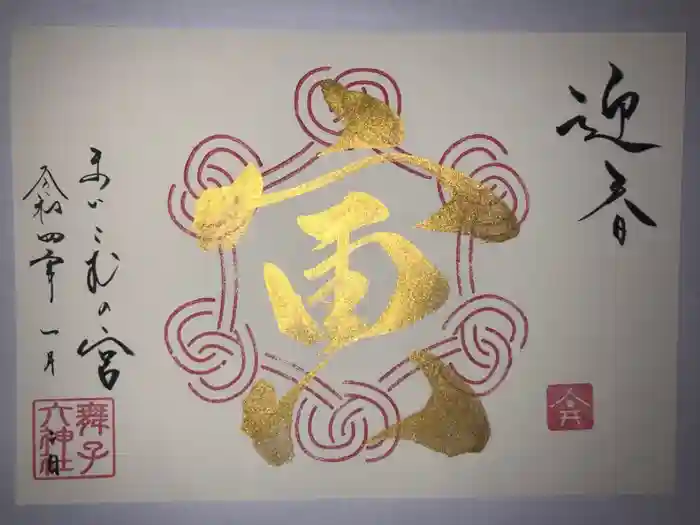 迎春
寅
まいこむの宮
令和四年 一月 日
舞子
六神社